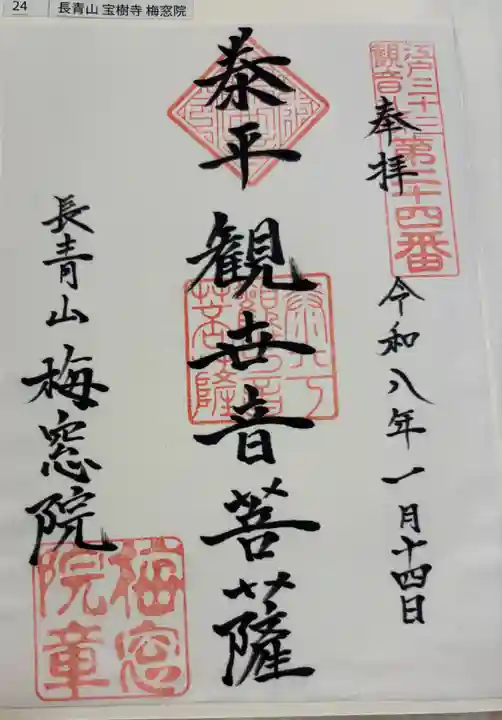 24 長青山 宝樹寺 梅窓院
江戸三十三
観音
第二十四番
奉拝
令和八年一月十四日
泰平観世音菩薩
長青山
梅窓院
梅窓
院章